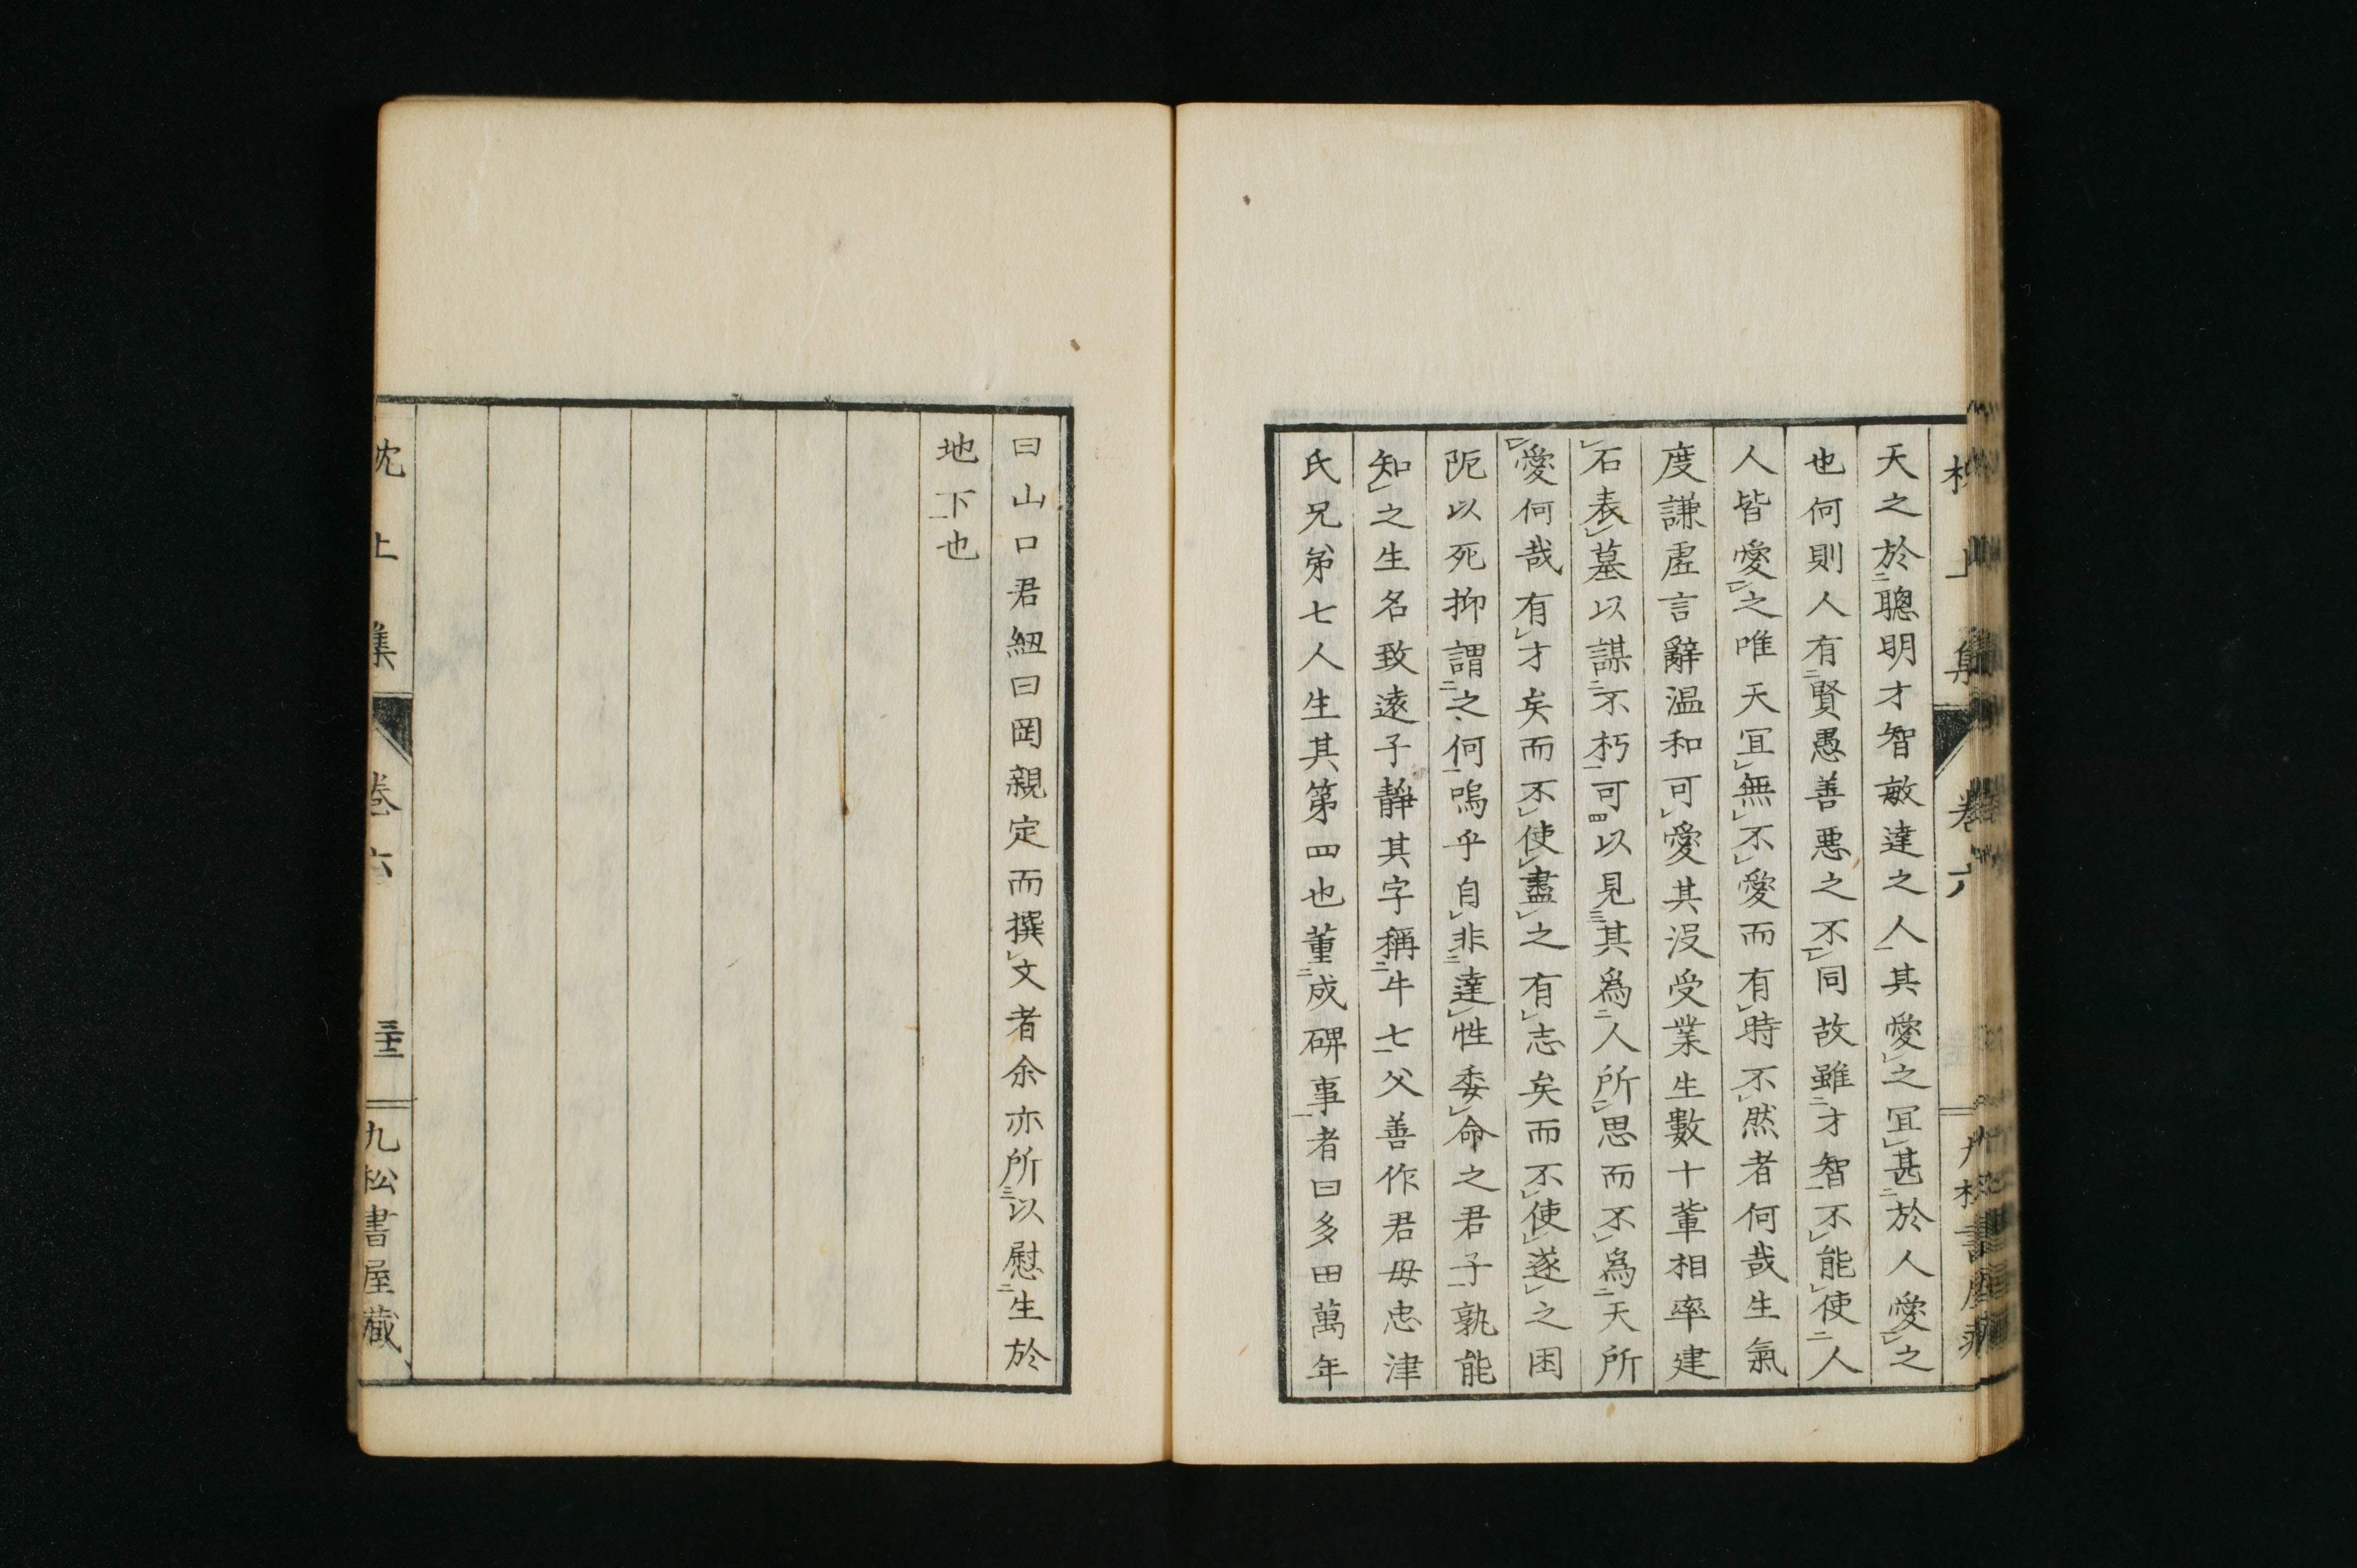 天之於聰明才智敏達之人其愛之冝甚於人愛之
也何則人有賢愚善悪之不同故雖才智不能使人
人皆愛之唯天冝無不愛而有時不然者何哉生氣
度謙虗言辭温和可愛其没受業生數十輩相率建
石表墓以謀不朽可以見其爲人所思而不爲天所
愛何哉有才矣而不使盡之有志矣而不使遂之困
阨以死抑謂之何嗚乎自非達性委命之君子孰能
知之生名致遠子靜其字稱牛七父善作君母忠津
氏兄弟七人生其第四也董成碑事者曰多田萬年
曰山口君紐曰岡親定而撰文者余亦所以慰生於
地下也
枕上集 卷六 三十三 九松書屋藏